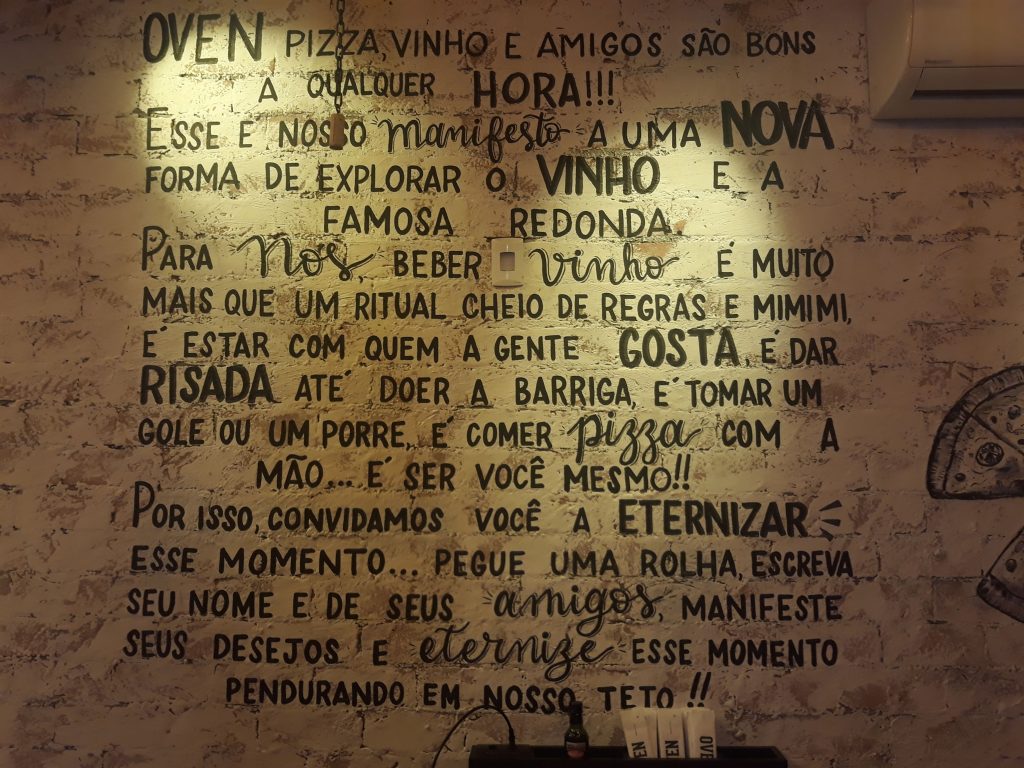 OVEN PIZZA, VINHO E AMIGOS SÃO BONS
A QUALQUER HORA!!!
ESSE E NOSSO manifesto A UMA NOVA
FORMA DE EXPLORAR O VINHO E A
FAMOSA REDONDA.
PARA Nós, BEBER vinho É MUITO
MAIS QUE UM RITUAL CHEIO DE REGRAS E MIMIMI,
É ESTAR COM QUEM A GENTE GOSTA, É DAR
RISADA ATÉ DOER A BARRIGA, É TOMAR UM
GOLE OU UM PORRE, É COMER pizza COM A
MÃO... É SER VOCÊ MESMO!!
POR ISSO, CONVIDAMOS VOCÊ A ETERNIZAR
ESSE MOMENTO... PEGUE UMA ROLHA, ESCREVA
SEU NOME E DE SEUS amigos, MANIFESTE
SEUS DESEJOS E eternize ESSE MOMENTO
PENDURANDO EM NOSSO TETO!!
TEN
TEN
OVE